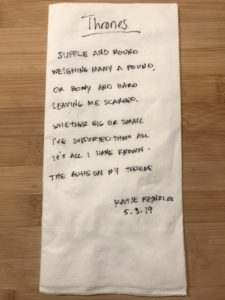 Thrones
SUPPLE AND ROUND
WEIGHING MANY A POUND,
OR BONY AND HARD
LEAVING ME SCARRED.
WHETHER BIG OR SMALL
I'VE SUPPORTED THEM ALL
IT'S ALL I HAVE KNOWN -
THE BUTTS ON MY THRONE
KATIE REYNOLDS
5.3.19